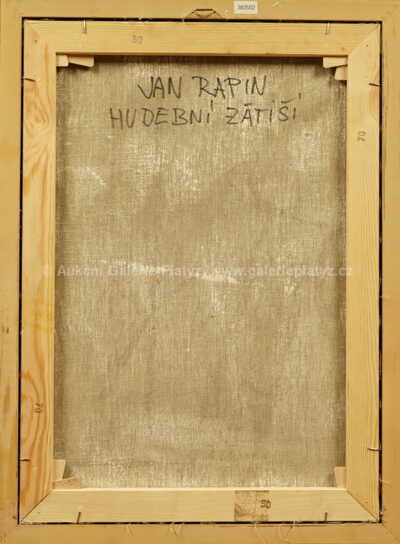 50
JAN RAPIN
HUDEBNÍ ZÁTIŠÍ
70
© Aukční Galerie Platýz, www.galerieplatyz.cz
70
50